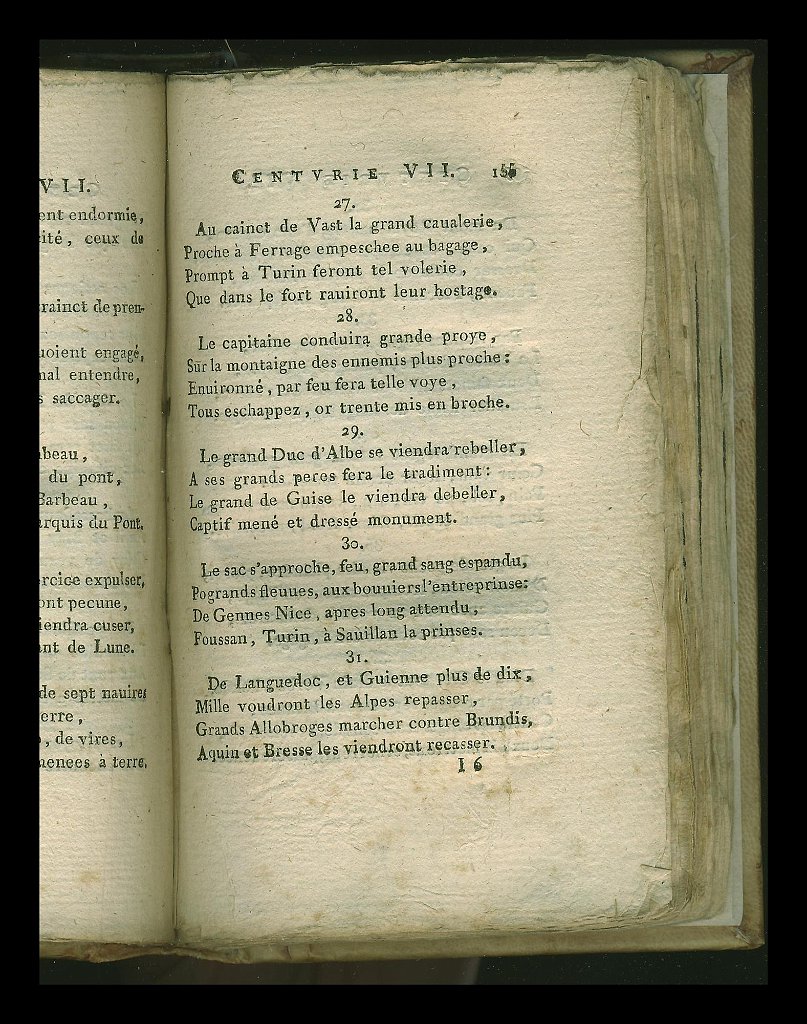 VII.
ent endormie,
cité, ceux de
rainct de pren-
uoient engagé,
mal entendre,
s saccager.
beau,
du pont,
Barbeau,
arquis du Pont.
ercice expulser,
ont pecune,
iendra cuser,
ant de Lune.
de sept nauires
erre,
, de vires,
menees à terre.
CENTVRIE VII. 155
27.
Au cainct de Vast la grand caualerie,
Proche à Ferrage empeschee au bagage,
Prompt à Turin feront tel volerie,
Que dans le fort rauiront leur hostage.
28.
Le capitaine conduira grande proye,
Sur la montaigne des ennemis plus proche:
Enuironné, par feu fera telle voye,
Tous eschappez, or trente mis en broche.
29.
Le grand Duc d'Albe se viendra rebeller,
A ses grands peres fera le tradiment:
Le grand de Guise le viendra debeller,
Captif mené et dressé monument.
30.
Le sac s'approche, feu, grand sang espandu,
Po grands fleuues, aux bouuiers l'entreprinse:
De Gennes Nice, apres long attendu,
Foussan, Turin, à Sauillan la prinses.
31.
De Languedoc, et Guienne plus de dix,
Mille voudront les Alpes repasser,
Grands Allobroges marcher contre Brundis,
Aquin et Bresse les viendront recasser.
I 6